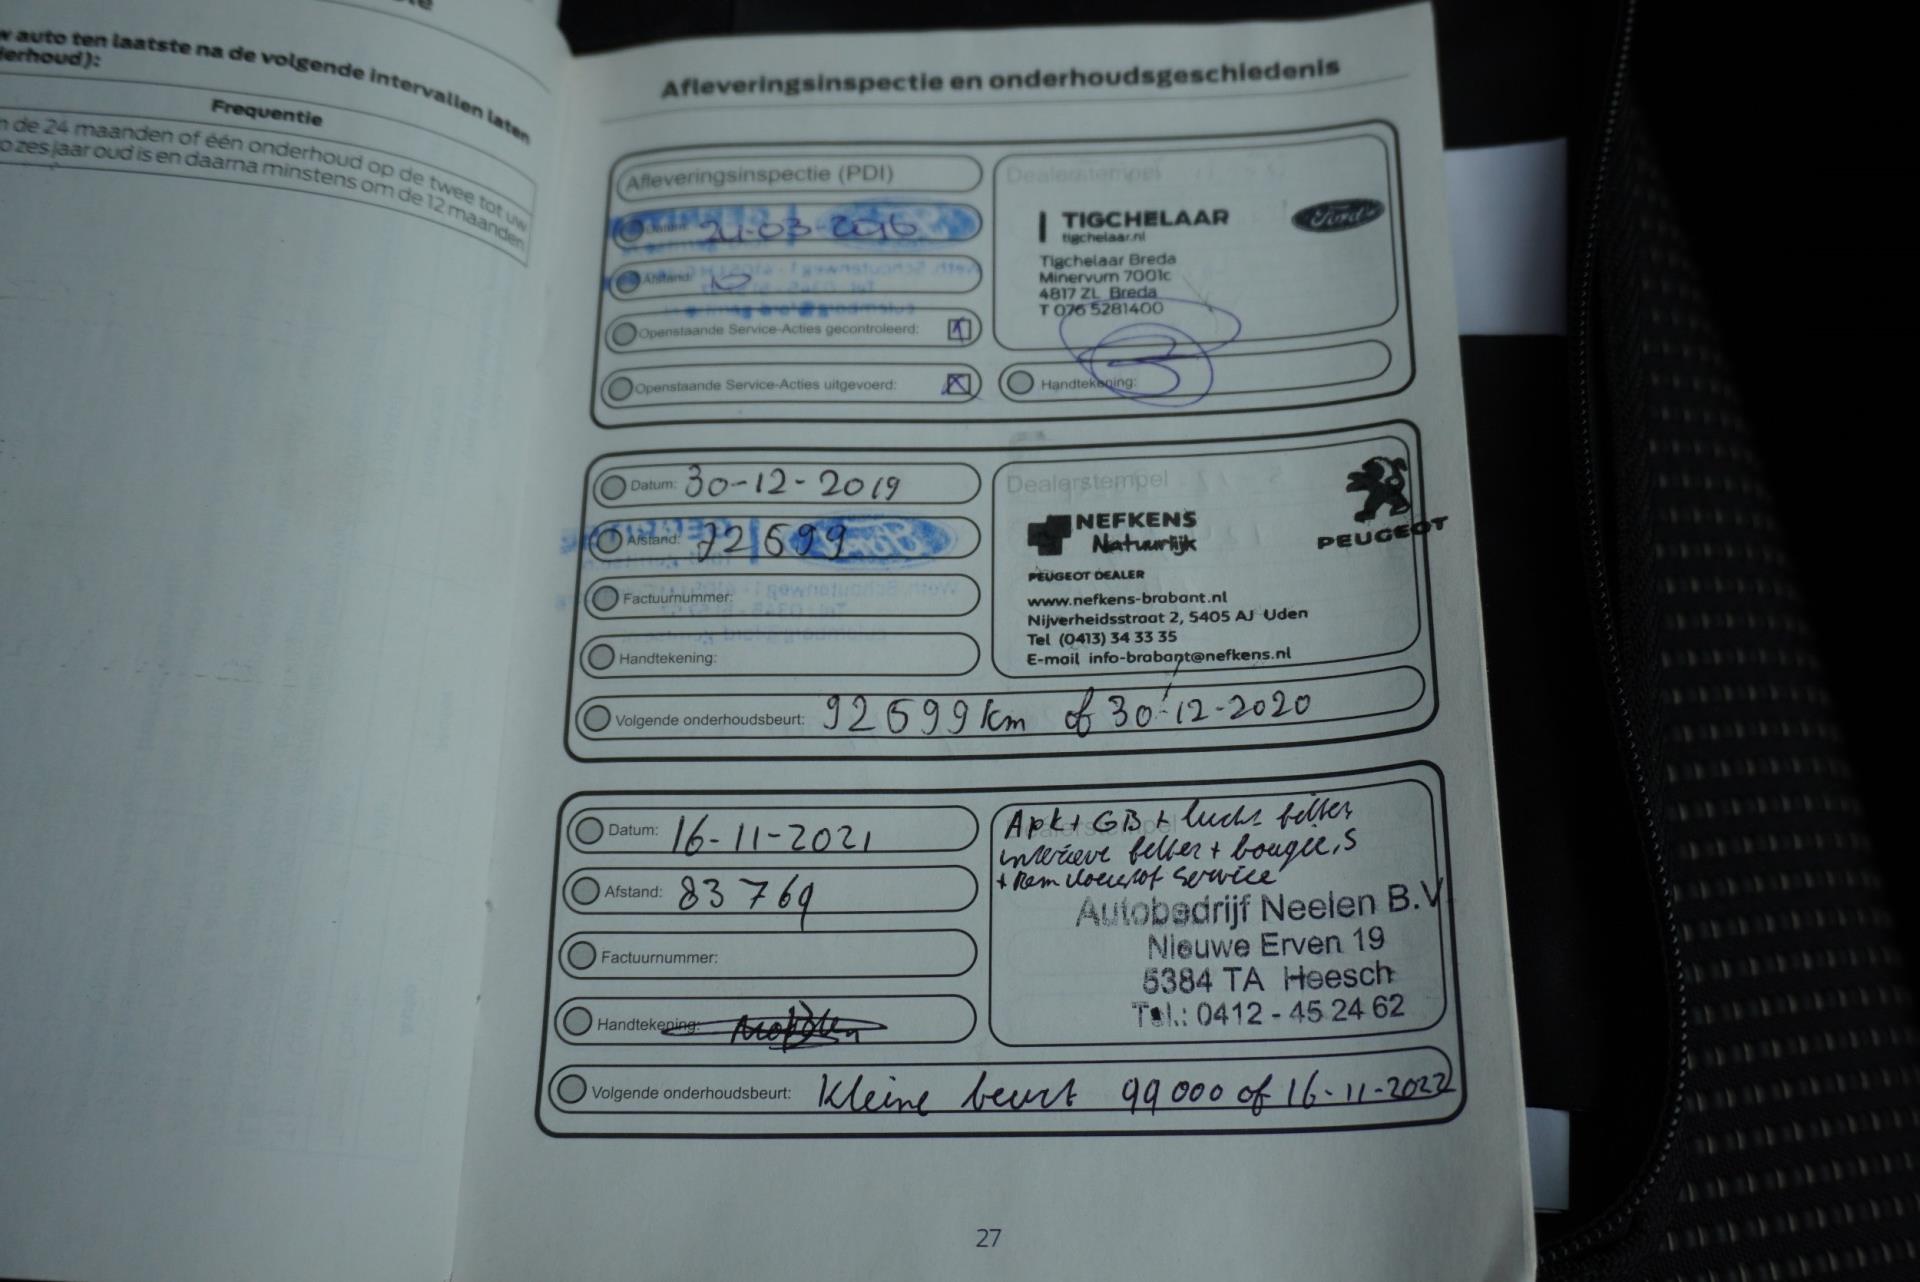 w auto ten laatste na de volgende intervallen laten
derhoud):
Frequentie
n de 24 maanden of één onderhoud op de twee tot uw
o zes jaar oud is en daarna minstens om de 12 maanden
Afleveringsinspectie en onderhoudsgeschiedenis
Afleveringsinspectie (PDI)
Datum: 24-03-2016
Afstand: 10
Openstaande Service-Acties gecontroleerd:
Openstaande Service-Acties uitgevoerd:
Dealerstempel
TIGCHELAAR
tigchelaar.nl
Ford
Tigchelaar Breda
Minervum 7001c
4817 ZL Breda
T 076 5281400
Handtekening:
Datum: 30-12-2019
Afstand: 72699
Factuurnummer:
Handtekening:
Dealerstempel
NEFKENS
Natuurlijk
PEUGEOT
PEUGEOT DEALER
www.nefkens-brabant.nl
Nijverheidsstraat 2, 5405 AJ Uden
Tel (0413) 34 33 35
E-mail info-brabant@nefkens.nl
Volgende onderhoudsbeurt: 92699 km of 30-12-2020
Datum: 16-11-2021
Afstand: 83769
Factuurnummer:
Handtekening:
Apk + GB + lucht filter
interieur filter + bougie,s
+ Remvloeistof service
Autobedrijf Neelen B.V.
Nieuwe Erven 19
5384 TA Heesch
Tel.: 0412 - 45 24 62
Volgende onderhoudsbeurt: Kleine beurt 99000 of 16-11-2022
27